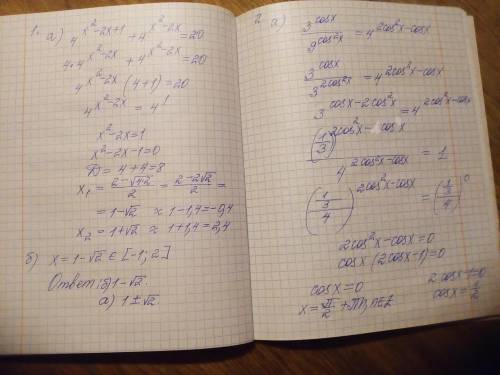 1. а) 4^(x²-2x+1) + 4^(x²-2x) = 20
4·4^(x²-2x) + 4^(x²-2x) = 20
4^(x²-2x) (4+1) = 20
4^(x²-2x) = 4¹
x²-2x=1
x²-2x-1=0
D = 4+4=8
x₁ = (2-√4·2)/2 = (2-2√2)/2 =
= 1-√2 ≈ 1-1,4=-0,4
x₂ = 1+√2 ≈ 1+1,4=2,4
б) x=1-√2 ∈ [-1; 2]
Ответ: б) 1-√2.
а) 1±√2.
2. а) 3^(cosx) / 9^(cos²x) = 4^(2cos²x-cosx)
3^(cosx) / 3^(2cos²x) = 4^(2cos²x-cosx)
3^(cosx-2cos²x) = 4^(2cos²x-cosx)
(1/3)^(2cos²x-cosx) / 4^(2cos²x-cosx) = 1
((1/3)/4)^(2cos²x-cosx) = ((1/3)/4)^0
2cos²x-cosx=0
cosx(2cosx-1)=0
cosx=0
x=π/2+πn, n∈Z
2cosx-1=0
cosx=1/2